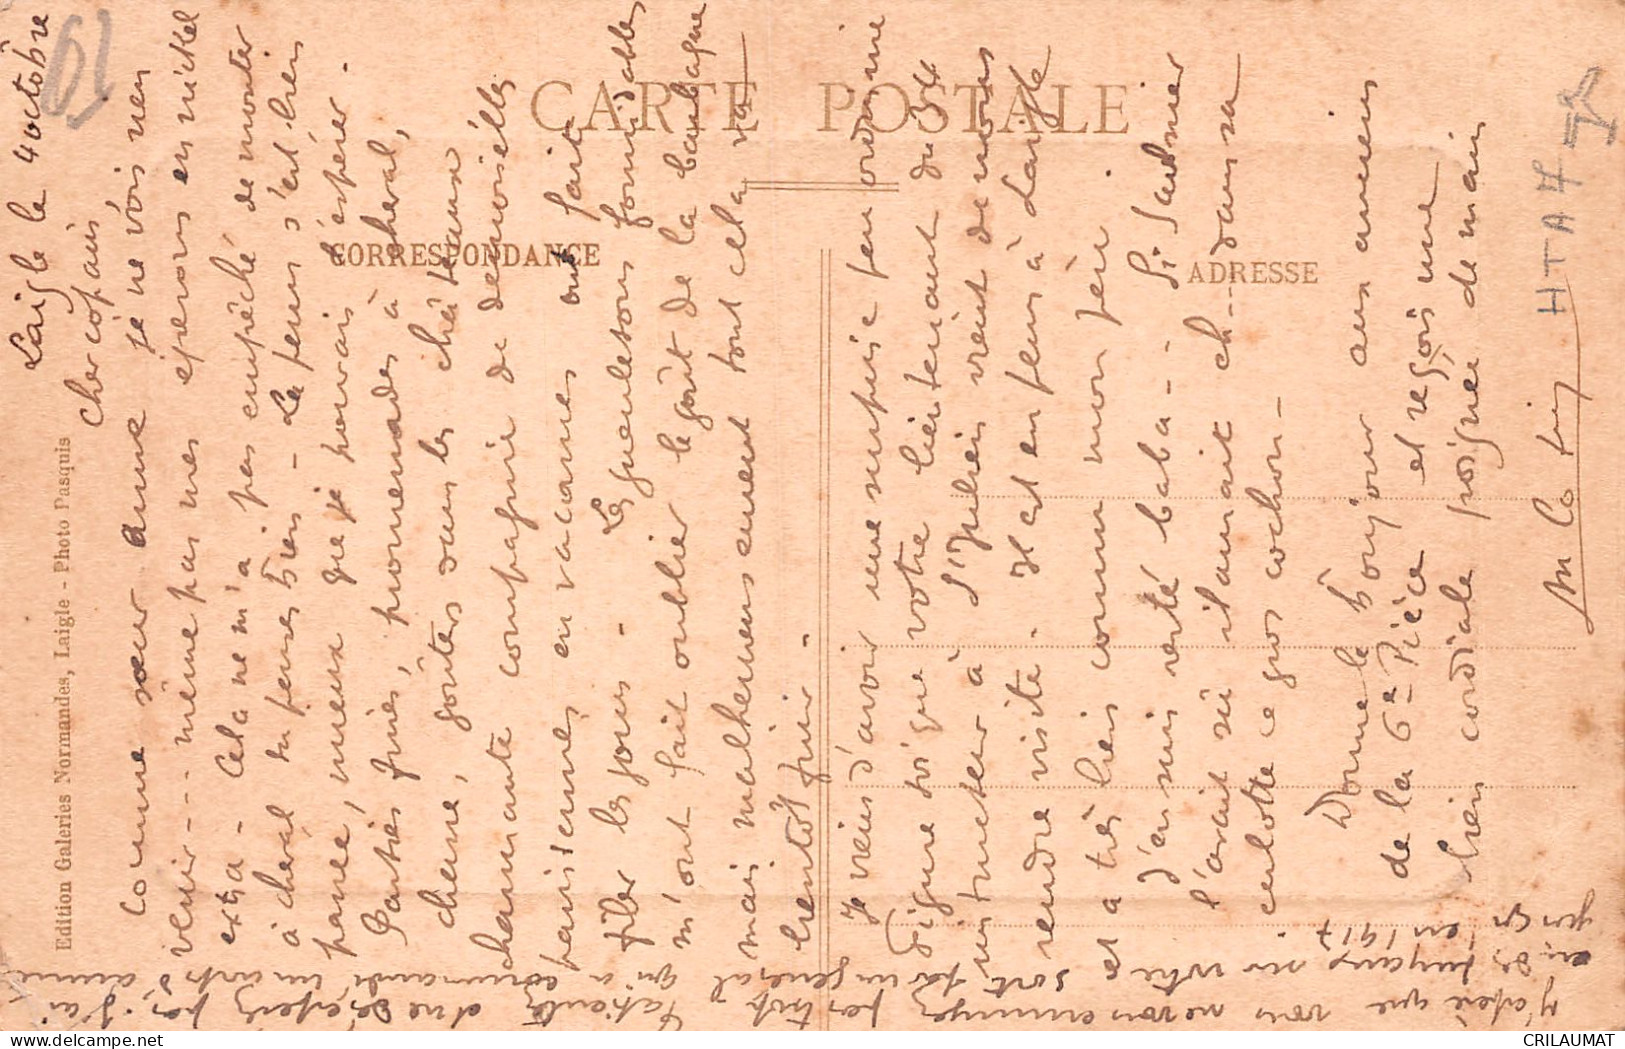 CARTE POSTALE
CORRESPONDANCE
ADRESSE
Edition Galeries Normandes, Laigle - Photo Pasquis
61
Laigle le 4 octobre
Cher copain
comme sœur anne je ne vois rien
venir --- même pas mes éperons en nickel
extra - Cela ne m'a pas empêché de monter
à cheval du pensez bien - Le temps s'est bien
passé, mieux que je pouvais l'espérer.
Parties fines, promenades à cheval,
chasse, goûters dans les châteaux
charmante compagnie de demoiselles
parisiennes en vacances ont fait
filer les jours - Les gueuletons formidables
m'ont fait oublier le goût de la barbaque
mais malheureusement tout cela va
bientôt finir -
Je viens d'avoir une surprise peu ordinaire
Figure toi que votre lieutenant du 34
instructeur à vient de nous
rendre visite. Il est en perm à Laigle
et a très bien connu mon père.
J'en suis resté baba -. Si Saunier
l'avait su il aurait ch... dans sa
culotte ce gros cochon -
Donne le bonjour aux anciens
de la 6e Pièce et reçois une
bien cordiale poignée de main
HTA 7 5F
J'espère que vous ne vous ennuyez pas trop
sur votre sort
un général qui a commandé
en 1917